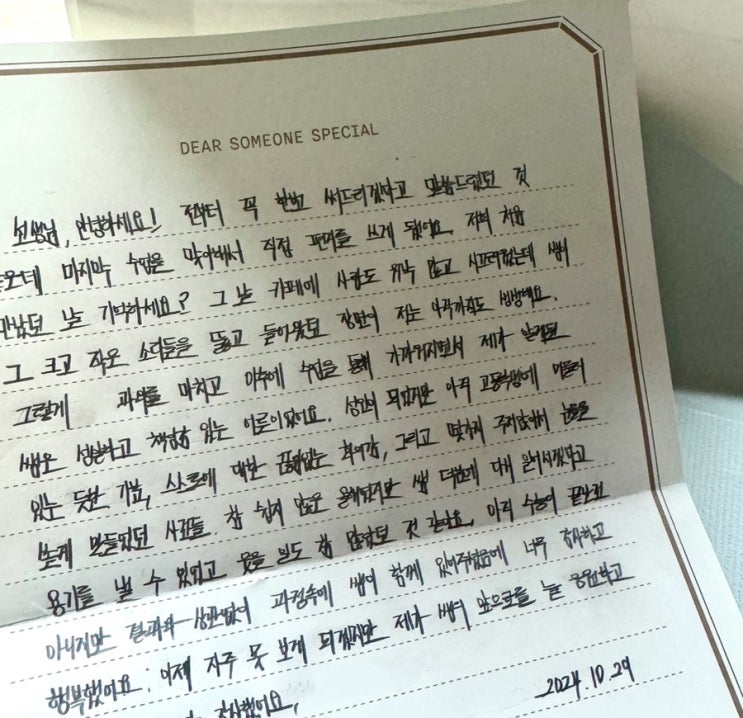 DEAR SOMEONE SPECIAL
선생님, 안녕하세요! 전부터 꼭 한번 써드리겠다고 말씀드렸던 것
같은데 마지막 수업을 맞이해서 직접 편지를 쓰게 됐어요. 저희 처음
만났던 날 기억하세요? 그 날 카페에 사람도 워낙 많고 시끄러웠는데 쌤이
그 크고 작은 소리들을 뚫고 들어왔던 장면이 저는 아직까지도 생생해요.
그렇게 과외를 마치고 이후에 수업을 통해 가까워지면서 제가 알게된
쌤은 성실하고 책임감 있는 어른이었어요. 성인이 되었지만 아직 고등학생에 머물러
있는 듯한 기분, 스스로에 대한 끊임없는 회의감, 그리고
쓸게 만들었던 사건들. 참 쉽지 않은 올해였지만 쌤 덕분에 다시 일어서겠다고
용기를 낼 수 있었고 웃을 일도 참 많았던 것 같아요. 아직 수능이 끝난건
아니지만 결과와 상관없이 과정속에 쌤이 함께 있어주셨음에 너무 감사하고
행복했어요. 이제 자주 못 보게 되겠지만 제가 쌤의 앞으로를 늘 응원하고
감사했어요,
2024.10.29